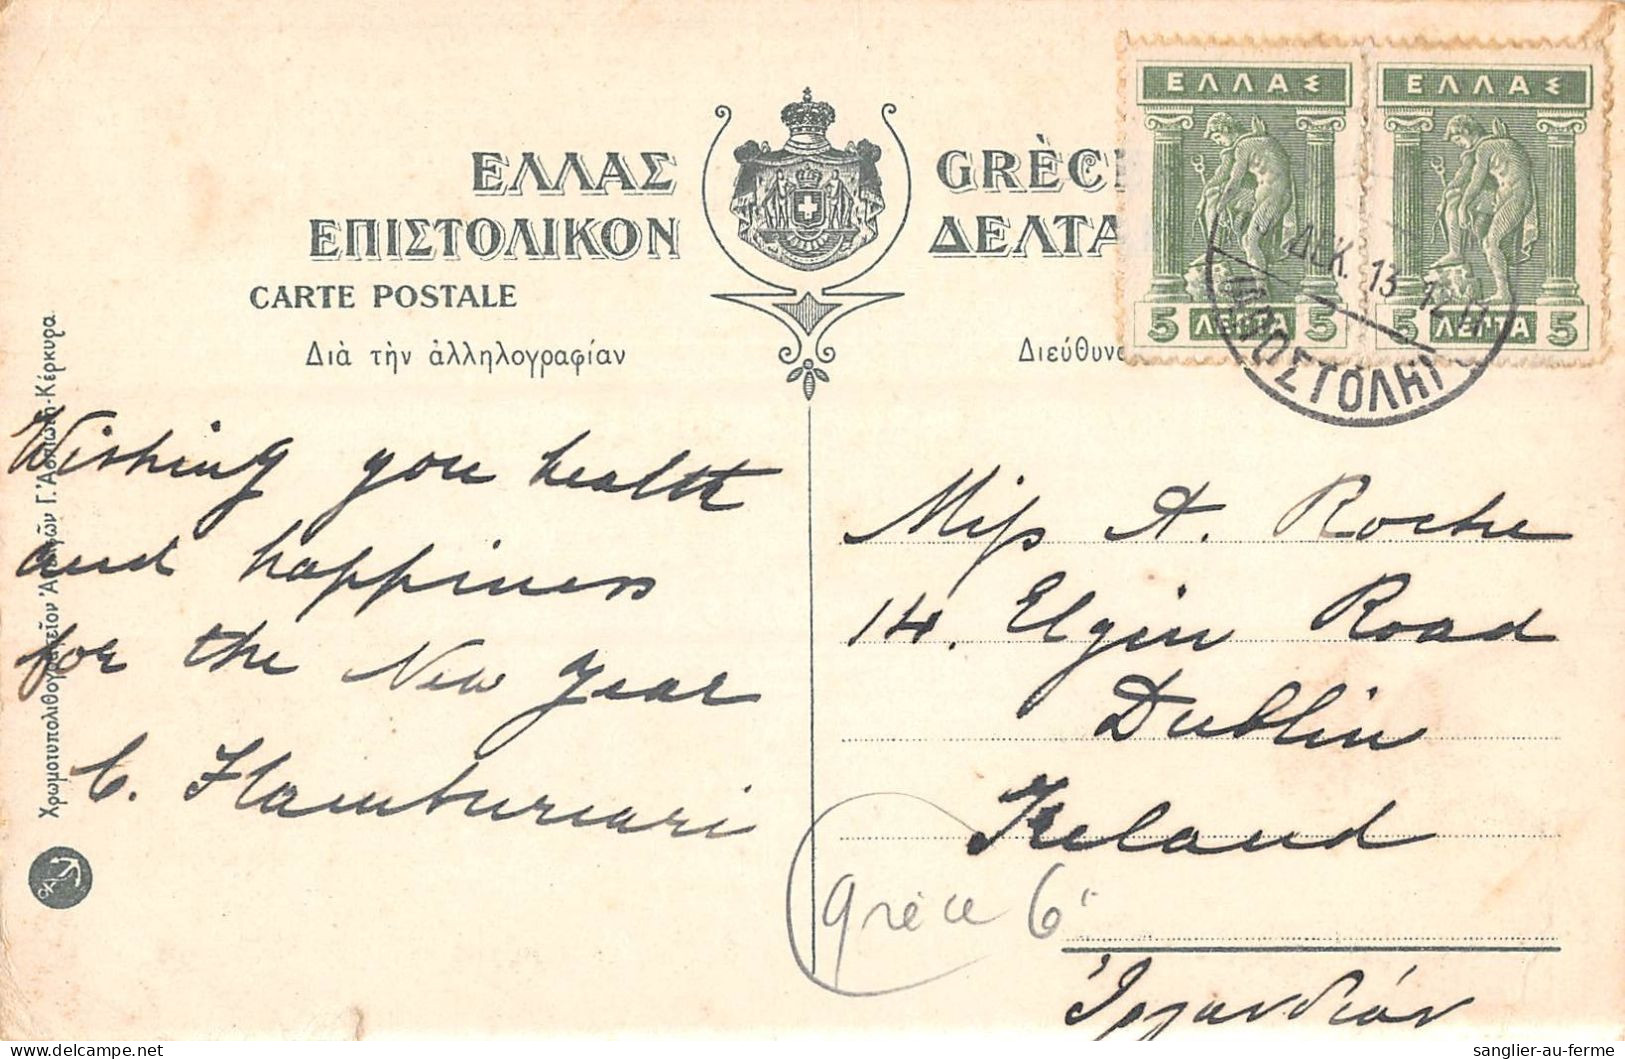 ΕΛΛΑΣ
ΕΛΛΑΣ
5 ΛΕΠΤΑ 5
5 ΛΕΠΤΑ 5
ΔΕΚ. 13
ΑΠΟΣΤΟΛΗ
ΕΛΛΑΣ
ΕΠΙΣΤΟΛΙΚΟΝ
CARTE POSTALE
Διὰ τὴν ἀλληλογραφίαν
GRÈCE
ΔΕΛΤΑ
Διεύθυνσ
Wishing you health
and happiness
for the New Year
C. Flamburiari
Miss A. Roche
14. Elgin Road
Dublin
Ireland
Ἰρλανδίαν
Grèce 6
Χρωμοτυπολιθογραφεῖον Ἀδελφῶν Γ. Ἀσπιώτη-Κέρκυρα.
sanglier-au-ferme